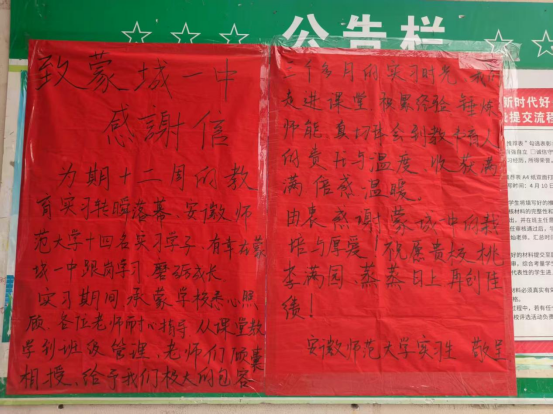 公告栏
致蒙城一中
感謝信
为期十二周的教
育实习转瞬落幕,安徽师
范大学十四名实习学子,有幸在蒙
城一中跟岗学习,磨砺成长
实习期间,承蒙学校悉心照
顾、各位老师耐心指导,从课堂教
学到班级管理,老师们倾囊
相授,给予我们极大的包容
二个多月的实习时光,我们
走进课堂,积累经验,锤炼
师能,真切体会到教书育人
的责任与温度,收获满
满倍感温暖
由衷感谢蒙城一中的栽
培与厚爱,祝愿贵校桃
李满园,蒸蒸日上,再创佳
绩!
安徽师范大学实习生 敬呈
新时代好
提交流程